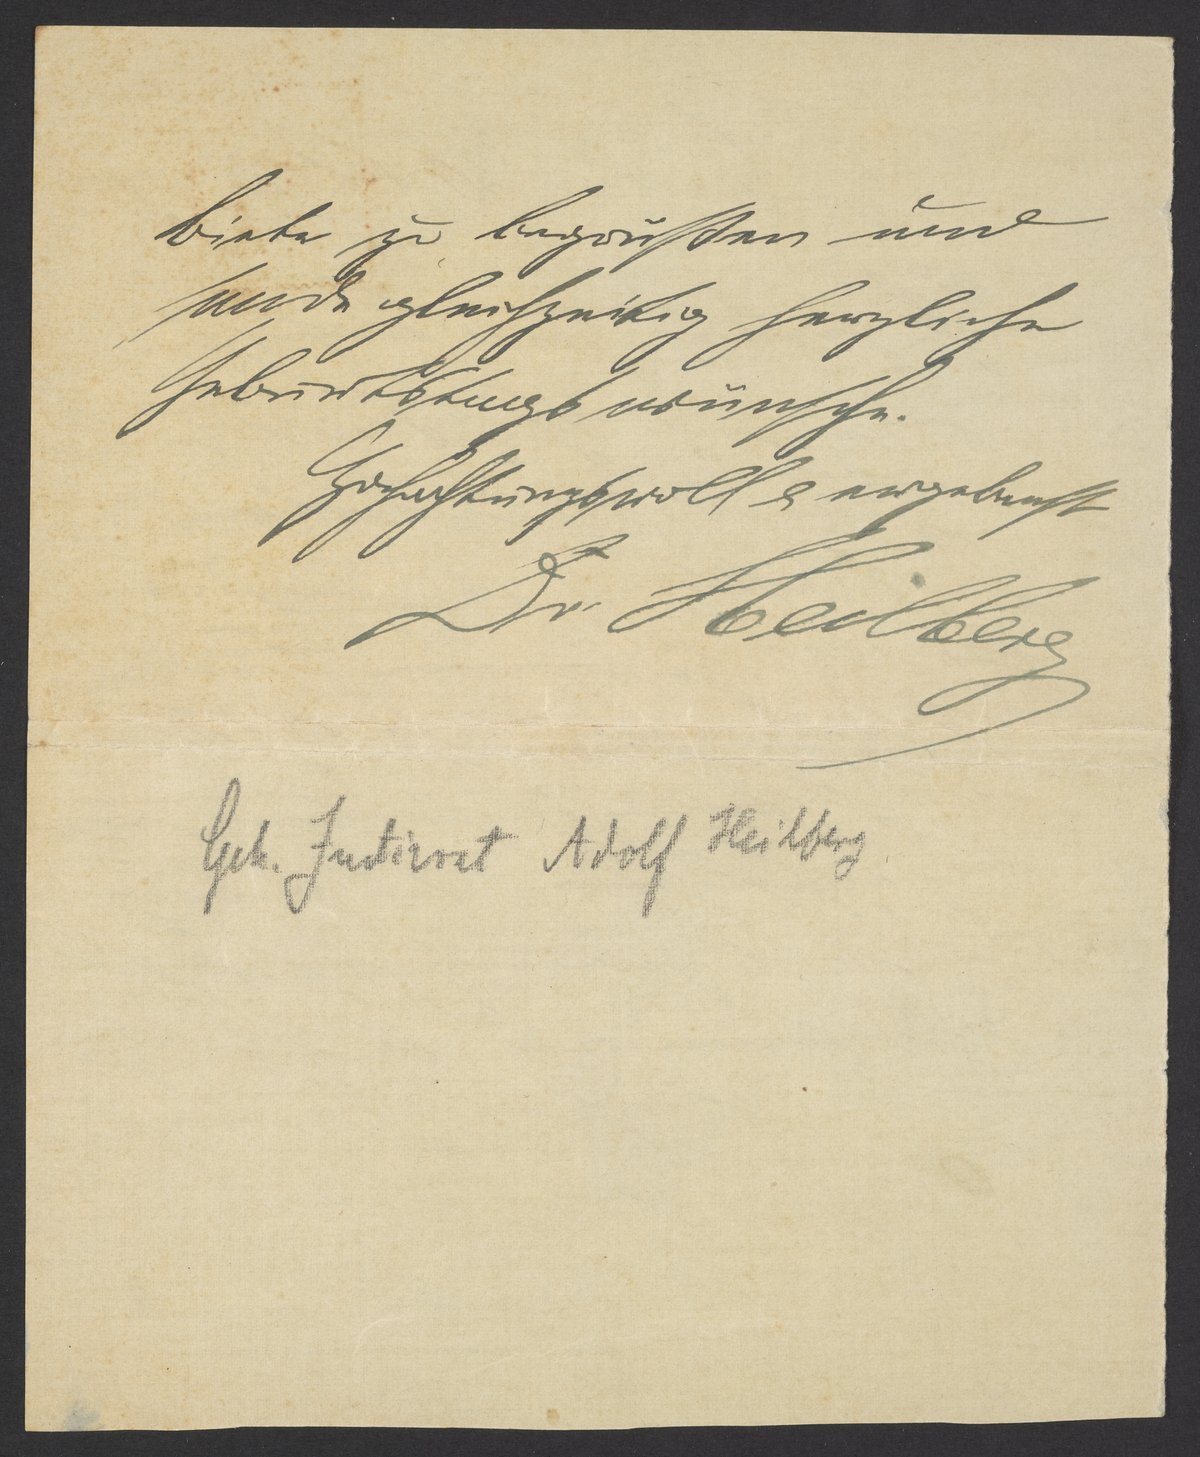 biete zu begrüßen und
sende gleichzeitig herzliche
Geburtstagswünsche.
Hochachtungsvoll & ergebenst
Dr. Heilberg
Geh. Justizrat Adolf Heilberg